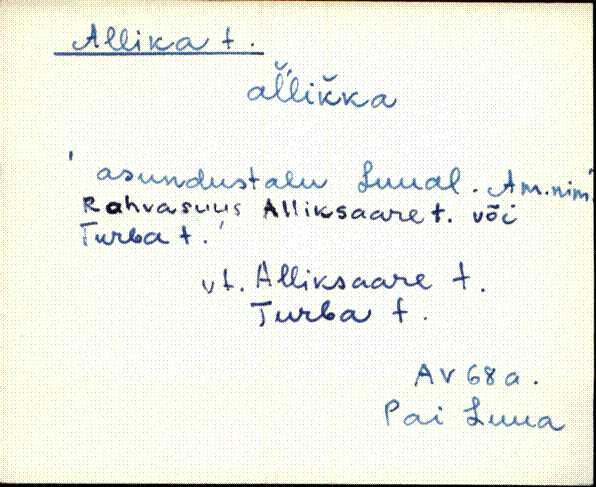 Allika t.
al̆likka
' asundustalu Luual. Am. nim.
Rahvasuus Alliksaare t. või
Turba t.'
vt. Alliksaare t.
Turba t.
AV 68 a.
Pai Luua